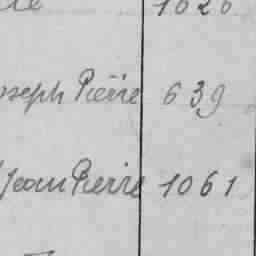 1020
oseph Pierre 639
Jean Pierre 1061